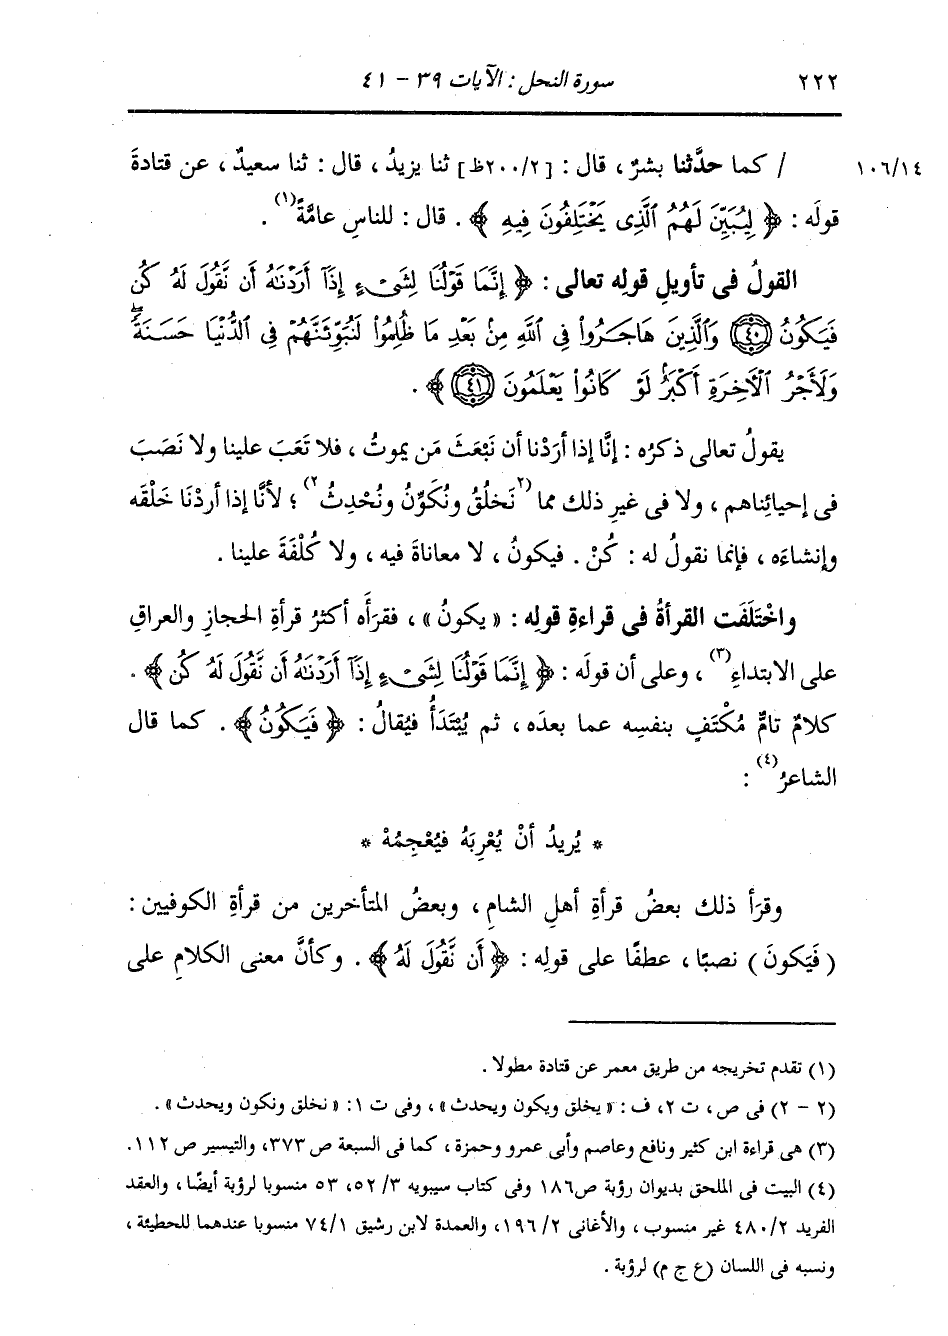 ٢٢٢ سورة النحل : الآيات ٣٩ - ٤١
١٠٦/١٤ / كما حدَّثنا بشرٌ ، قال : [٢٠٠/٢ظ] ثنا يزيدُ ، قال : ثنا سعيدٌ ، عن قتادةَ
قولَه : ﴿ لِيُبَيِّنَ لَهُمُ ٱلَّذِى يَخْتَلِفُونَ فِيهِ ﴾ . قال : للناسِ عامَّةً(١) .
القولُ فى تأويلِ قولِه تعالى : ﴿ إِنَّمَا قَوْلُنَا لِشَىْءٍ إِذَآ أَرَدْنَٰهُ أَن نَّقُولَ لَهُۥ كُن
فَيَكُونُ ﴿٤٠﴾ وَٱلَّذِينَ هَاجَرُوا۟ فِى ٱللَّهِ مِنۢ بَعْدِ مَا ظُلِمُوا۟ لَنُبَوِّئَنَّهُمْ فِى ٱلدُّنْيَا حَسَنَةً ۖ
وَلَأَجْرُ ٱلْأَخِرَةِ أَكْبَرُ ۚ لَوْ كَانُوا۟ يَعْلَمُونَ ﴿٤١﴾ ﴾ .
يقولُ تعالى ذكرُه : إنَّا إذا أرَدْنا أن نَبْعَثَ مَن يموتُ ، فلا تَعَبَ علينا ولا نَصَبَ
فى إحيائِناهم ، ولا فى غيرِ ذلك مما (٢)نَخلُقُ ونُكَوِّنُ ونُحْدِثُ(٢) ؛ لأنَّا إذا أردْنَا خَلْقَه
وإنشاءَه ، فإنما نقولُ له : كُنْ . فيكونُ ، لا معاناةَ فيه ، ولا كُلْفَةَ علينا .
واخْتَلَفَت القرأةُ فى قراءةِ قولِه : « يكونُ » ، فقرَأَه أكثرُ قرأةِ الحجازِ والعراقِ
على الابتداءِ(٣) ، وعلى أن قولَه : ﴿ إِنَّمَا قَوْلُنَا لِشَىْءٍ إِذَآ أَرَدْنَٰهُ أَن نَّقُولَ لَهُۥ كُن ﴾ .
كلامٌ تامٌّ مُكْتَفٍ بنفسِه عما بعدَه ، ثم يُبْتَدَأُ فيُقالُ : ﴿ فَيَكُونُ ﴾ . كما قال
الشاعرُ(٤) :
* يُريدُ أنْ يُعْرِبَهُ فيُعْجِمُهْ *
وقرَأ ذلك بعضُ قرأةِ أهلِ الشامِ ، وبعضُ المتأخرين من قرأةِ الكوفيين :
( فَيَكونَ ) نصبًا ، عطفًا على قولِه : ﴿ أَن نَّقُولَ لَهُۥ ﴾ . وكأنَّ معنى الكلامِ على
(١) تقدم تخريجه من طريق معمر عن قتادة مطولا .
(٢ - ٢) فى ص ، ت ٢ ، ف : « يخلق ويكون ويحدث » ، وفى ت ١ : « نخلق ونكون ويحدث » .
(٣) هى قراءة ابن كثير ونافع وعاصم وأبى عمرو وحمزة ، كما فى السبعة ص ٣٧٣، والتيسير ص ١١٢.
(٤) البيت فى الملحق بديوان رؤبة ص١٨٦ وفى كتاب سيبويه ٣/ ٥٢، ٥٣ منسوبا لرؤبة أيضًا ، والعقد
الفريد ٤٨٠/٢ غير منسوب ، والأغانى ٢/ ١٩٦، والعمدة لابن رشيق ٧٤/١ منسوبا عندهما للحطيئة ،
ونسبه فى اللسان (ع ج م) لرؤبة .